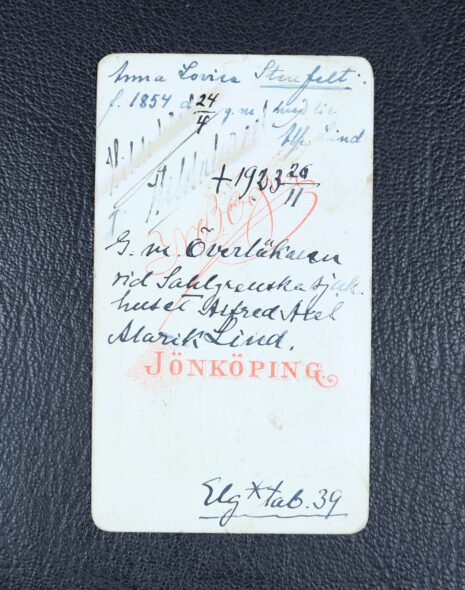 Anna Lovisa Stuefelt.
f. 1854 d 24/4 g. m. med lic
Alf. Lind
+ 1923 26/11
G. m. Överläkaren
vid Sahlgrenska sjuk-
huset Alfred Axel
Alarik Lind.
JÖNKÖPING
Elg * tab. 39